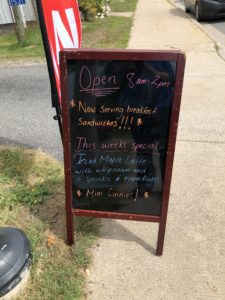 1537
N
Open 8am-2pm
* Now Serving breakfast
Sandwiches!!! *
This weeks special
Iced Maple Latte
with whipcream and
a sprinkle of maple flakes
* Mini Cinnies! *